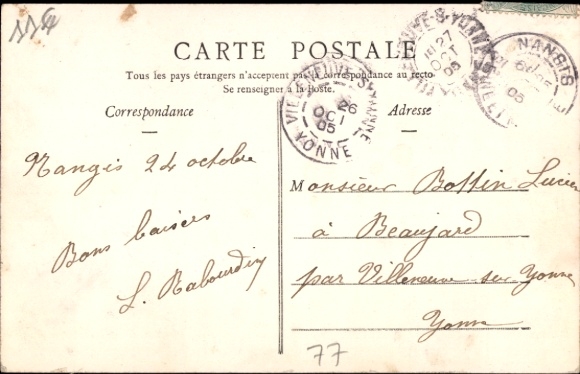 CARTE POSTALE
Tous les pays étrangers n'acceptent pas la correspondance au recto
Se renseigner à la Poste.
Correspondance
Adresse
Nangis 24 octobre
Bons baisers
L. Rabourdin
Monsieur Bottin Lucien
à Beaujard
par Villeneuve-sur-Yonne
Yonne
77
VILLENEUVE-S-YONNE
26
OCT
05
YONNE
27
OCT
05
NANGIS
05